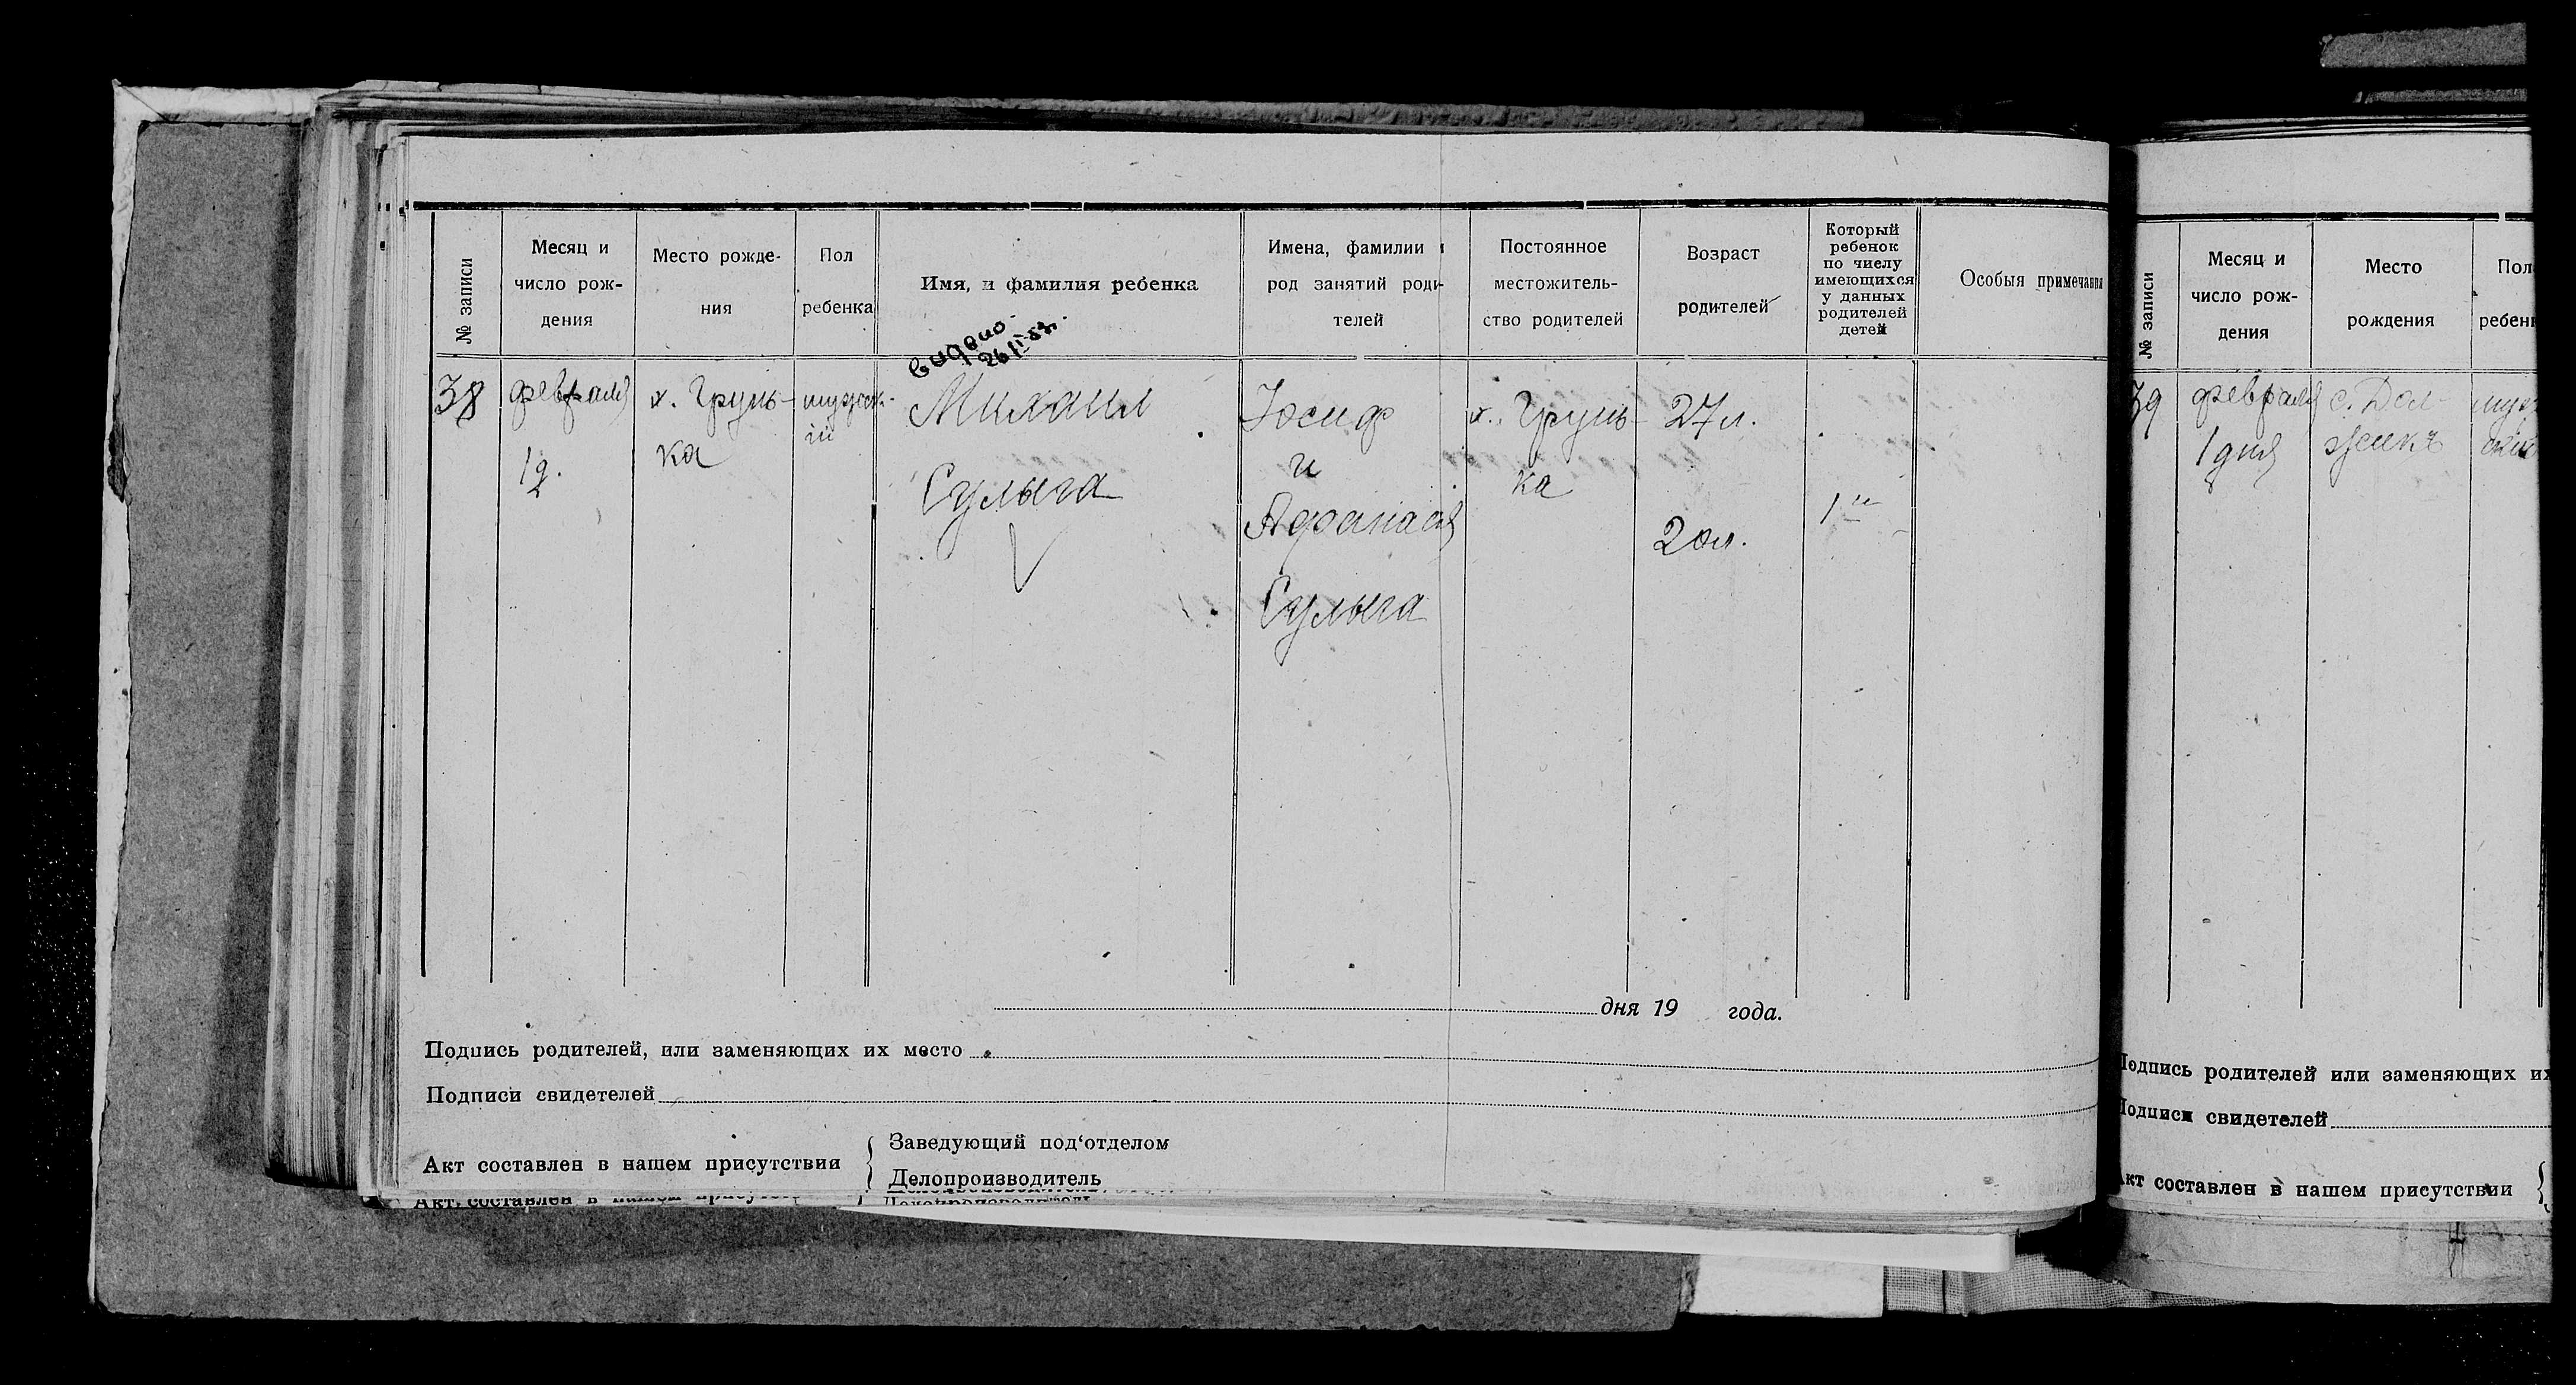 № записи
Месяц и
число рож-
дения
Место рожде-
ния
Пол
ребенка
Имя, и фамилия ребенка
Имена, фамилии и
род занятий роди-
телей
Постоянное
местожитель-
ство родителей
Возраст
родителей
Который
ребенок
по числу
имеющихся
у данных
родителей
детей
Особыя примечания
видано
38
февраля
12.
х. Грунь-
ка
мужск-
ій
Михаил
Сулыга
Іосиф
и
Афанасія
Сулыга
х. Грунь-
ка
27 л.
20 л.
1й
дня 19 года.
Подпись родителей, или заменяющих их место
Подписи свидетелей
Акт составлен в нашем присутствии
Заведующий под‘отделом
Делопроизводитель
Акт составлен в нашем присутст
Делопроизводитель
№ записи
Месяц и
число рож-
дения
Место
рождения
Пол
ребен
39
февраля
1 дня
с. Дол-
жикъ
муж
Подпись родителей или заменяющих их
Подписи свидетелей
Акт составлен в нашем присутствии